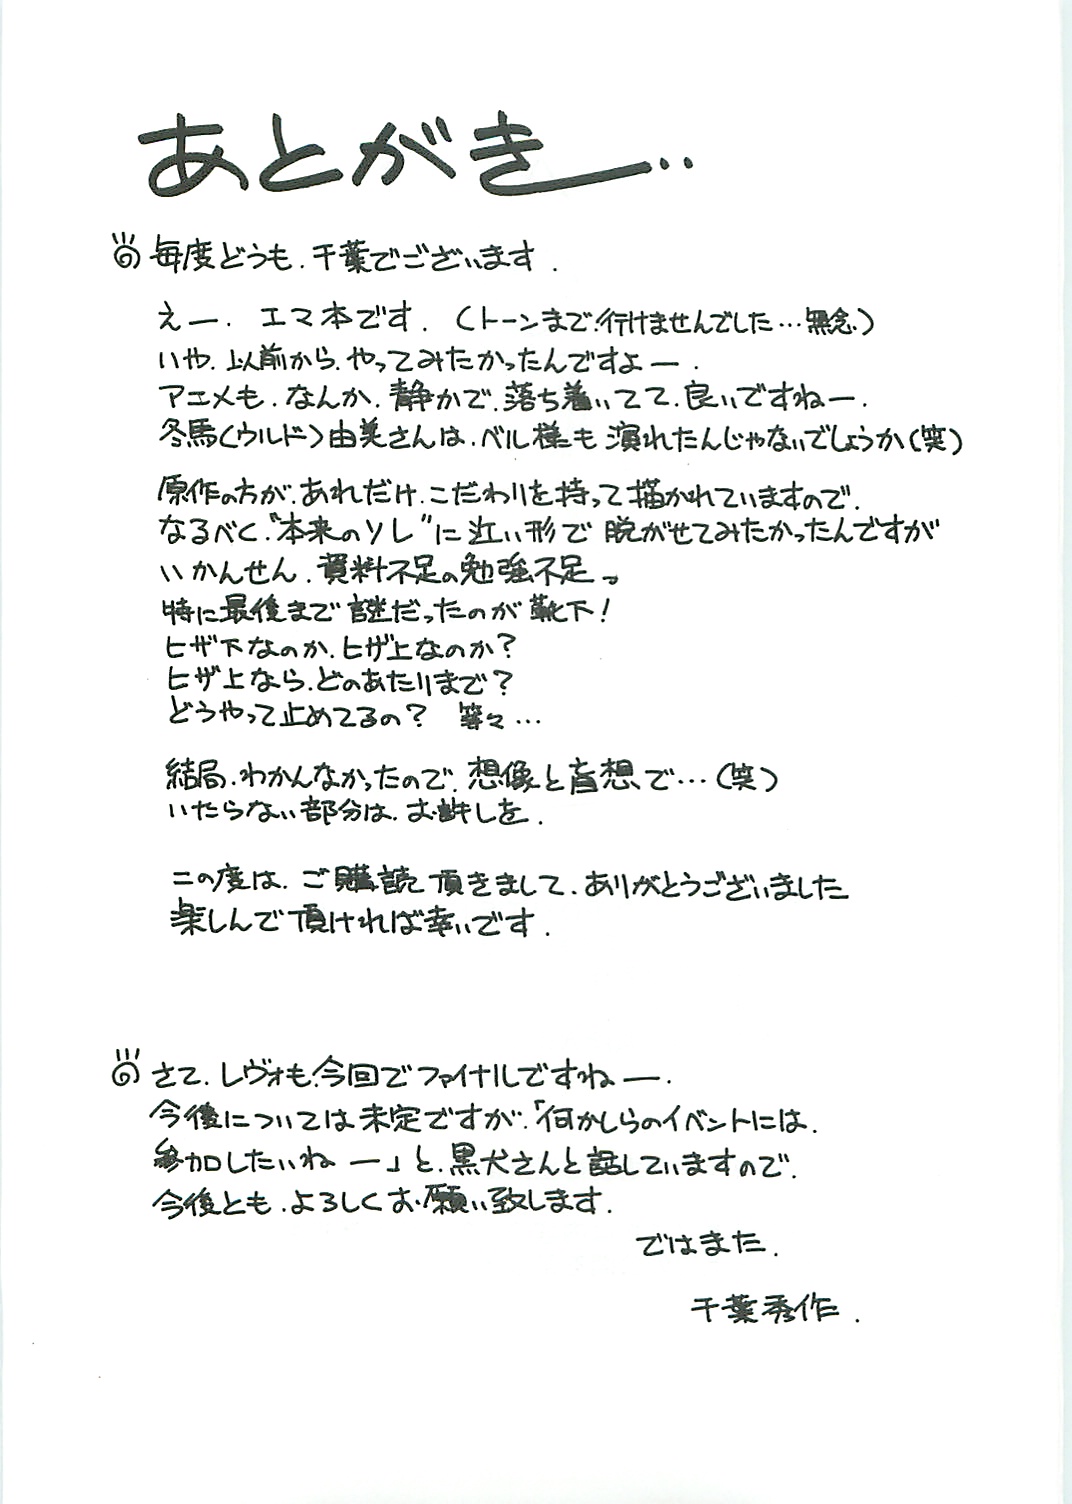 あとがき…
毎度どうも.千葉でございます.
えー.エマ本です.(トーンまで.行けませんでした…無念.)
いや.以前から.やってみたかったんですよー.
アニメも.なんか.静かで.落ち着いてて.良いですねー.
冬馬(ウルド)由美さんは.ベル様にも演れたんじゃないでしょうか(笑)
原作の方が.あれだけ.こだわりを持って描かれていますので.
なるべく.“本来のソレ”に近い形で脱がせてみたかったんですが
いかんせん.資料不足の勉強不足っ
特に最後まで謎だったのが靴下!
ヒザ下なのか.ヒザ上なのか?
ヒザ上なら.どのあたりまで?
どうやって止めてるの? 等々…
結局.わかんなかったので.想像と盲想で…(笑)
いたらない部分は.お許しを.
この度は.ご購読頂きまして.ありがとうございました
楽しんで頂ければ幸いです.
さて.レヴォも.今回でファイナルですねー.
今後については未定ですが.「何かしらのイベントには.
参加したいねー」と.黒犬さんと話していますので.
今後とも.よろしくお願い致します.
ではまた.
千葉秀作.